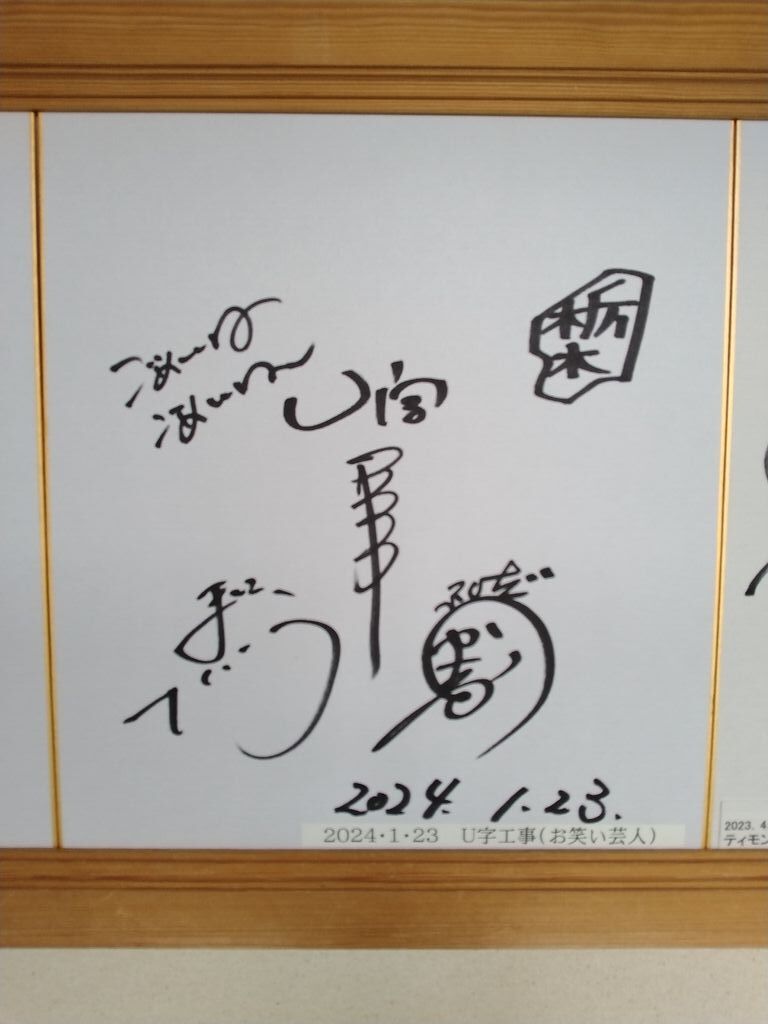 ごめんね
ごめんね
U字
工事
栃木
2024.1.23.
2024・1・23　U字工事(お笑い芸人)
2023.4
ティモン